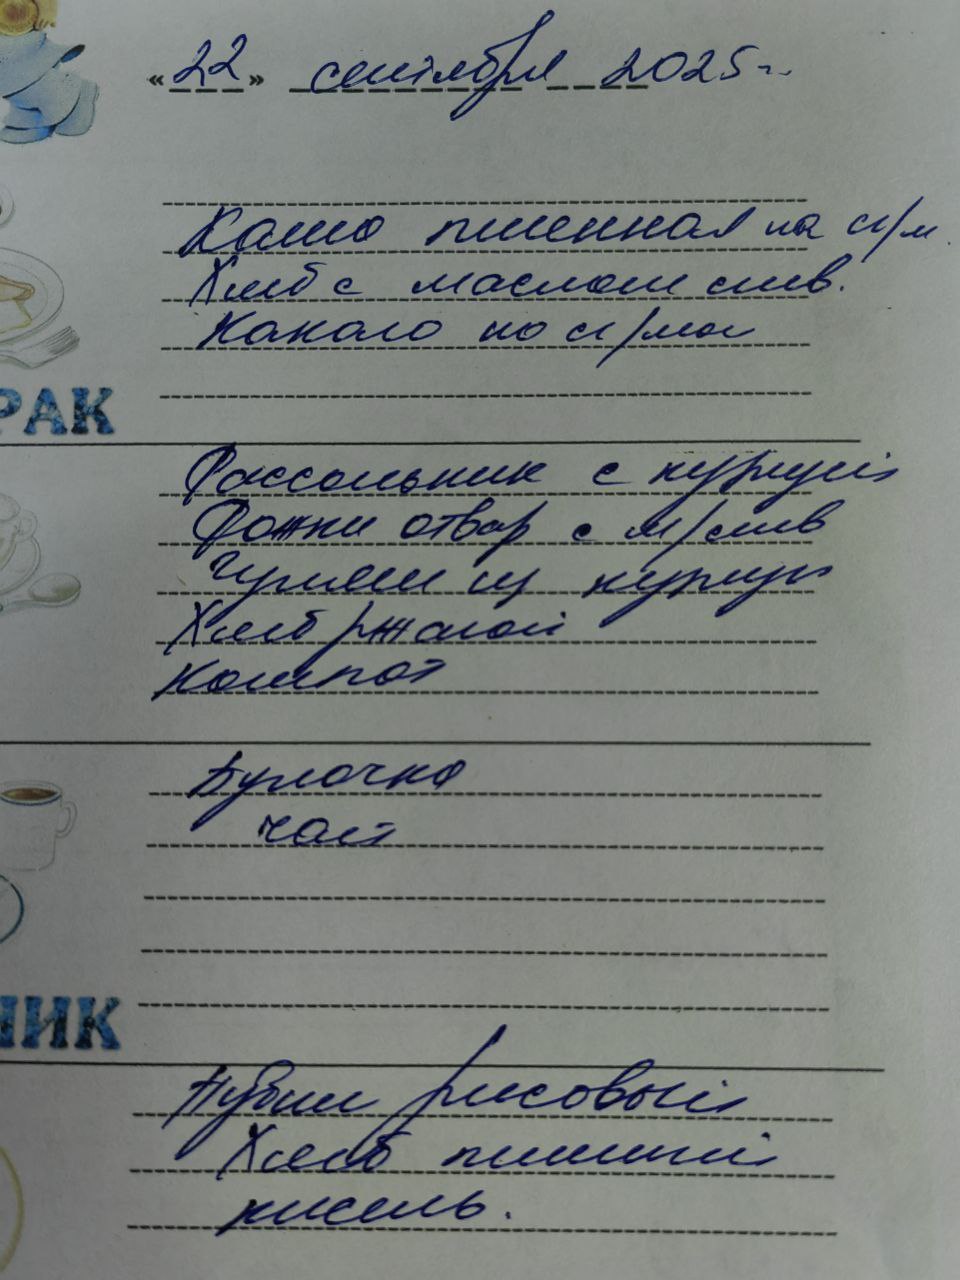 «22» сентября 2025г.
Каша пшенная на с/м.
Хлеб с маслом слив.
Какао на с/мол
РАК
Рассольник с курицей
Рожки отвар с м/слив
Гуляш из курицы
Хлеб ржаной
Компот
Булочка
чай
НИК
рисовый
Хлеб пшенич
кисель.